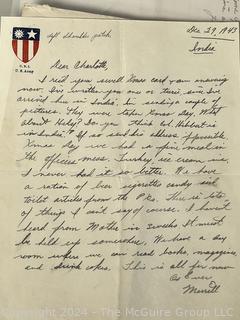 Dec 29, 1943
India
C.B.I.
U.S. Army
Dear Charlotte,
I rec'd your swell Xmas card this evening
now. I've written you one or twice since I've
arrived here in India. I'm sending a couple of
pictures. They were taken Xmas Day. What
about Hedy? Do you think Col. is
in India? If so send his address if possible.
Xmas day we had a fine meal in
the officers mess. Turkey, ice cream etc.
I never had it so better. We have
a ration of beer cigarettes candy and
toilet articles from the PXs. There is lots
of things I can't say of course. I haven't
heard from Mother in 3 weeks. It must
be held up somewhere. We have a day
room where we can read books, magazines
and drink cokes. This is all for now
As Ever
Merritt
© Copyright 2024 - The McGuire Group LLC